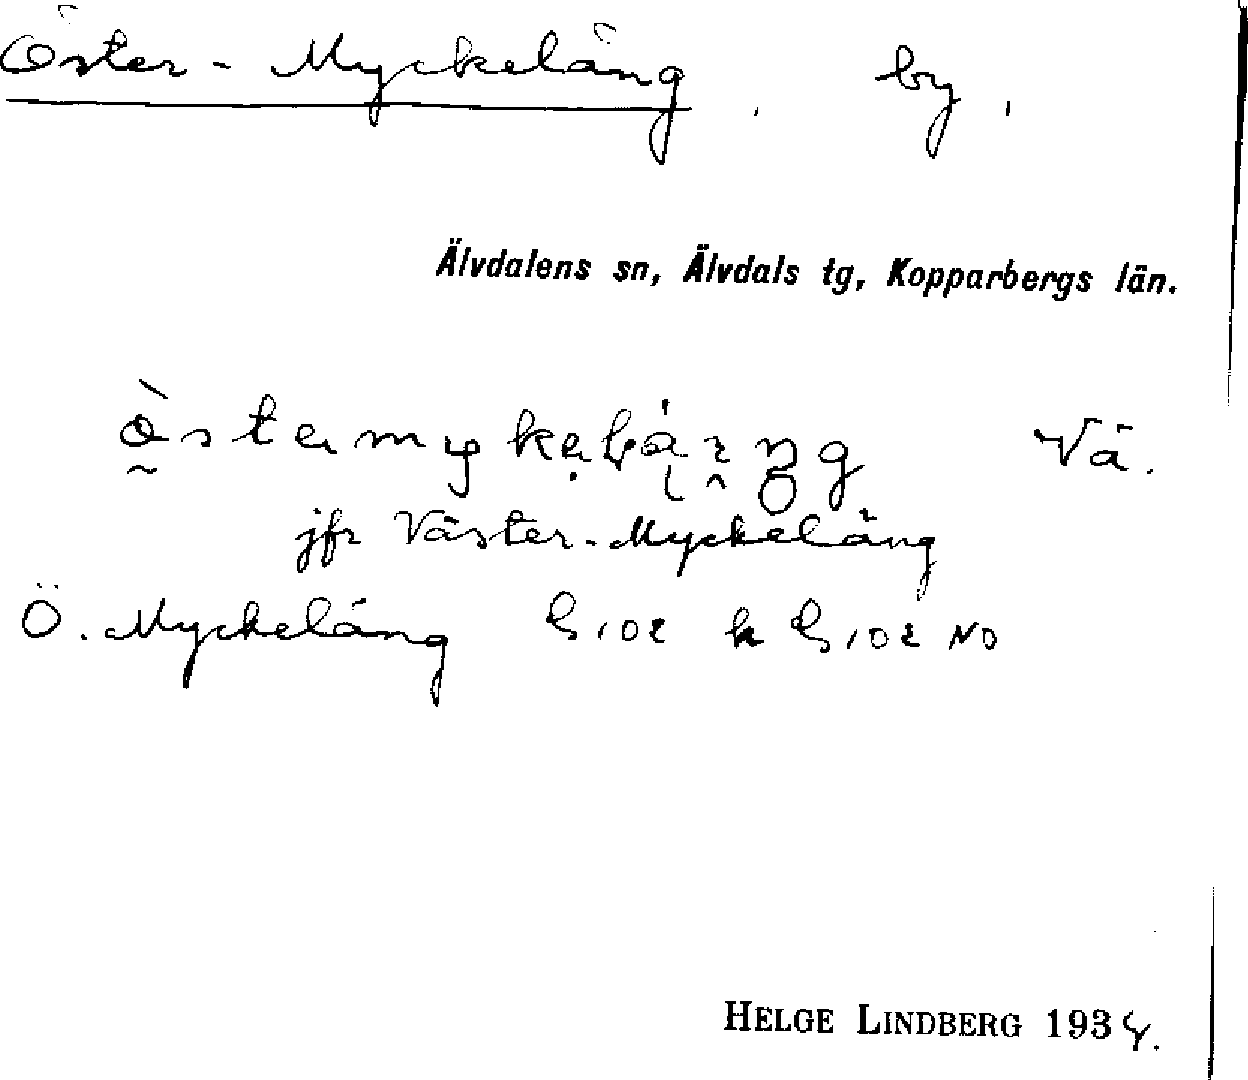 Öster-Myckeläng, by,
Älvdalens sn, Älvdals tg, Kopparbergs län.
Vä.
jfr Väster-Myckeläng
Ö. Myckeläng G 102 k G 102 NO
HELGE LINDBERG 1934.